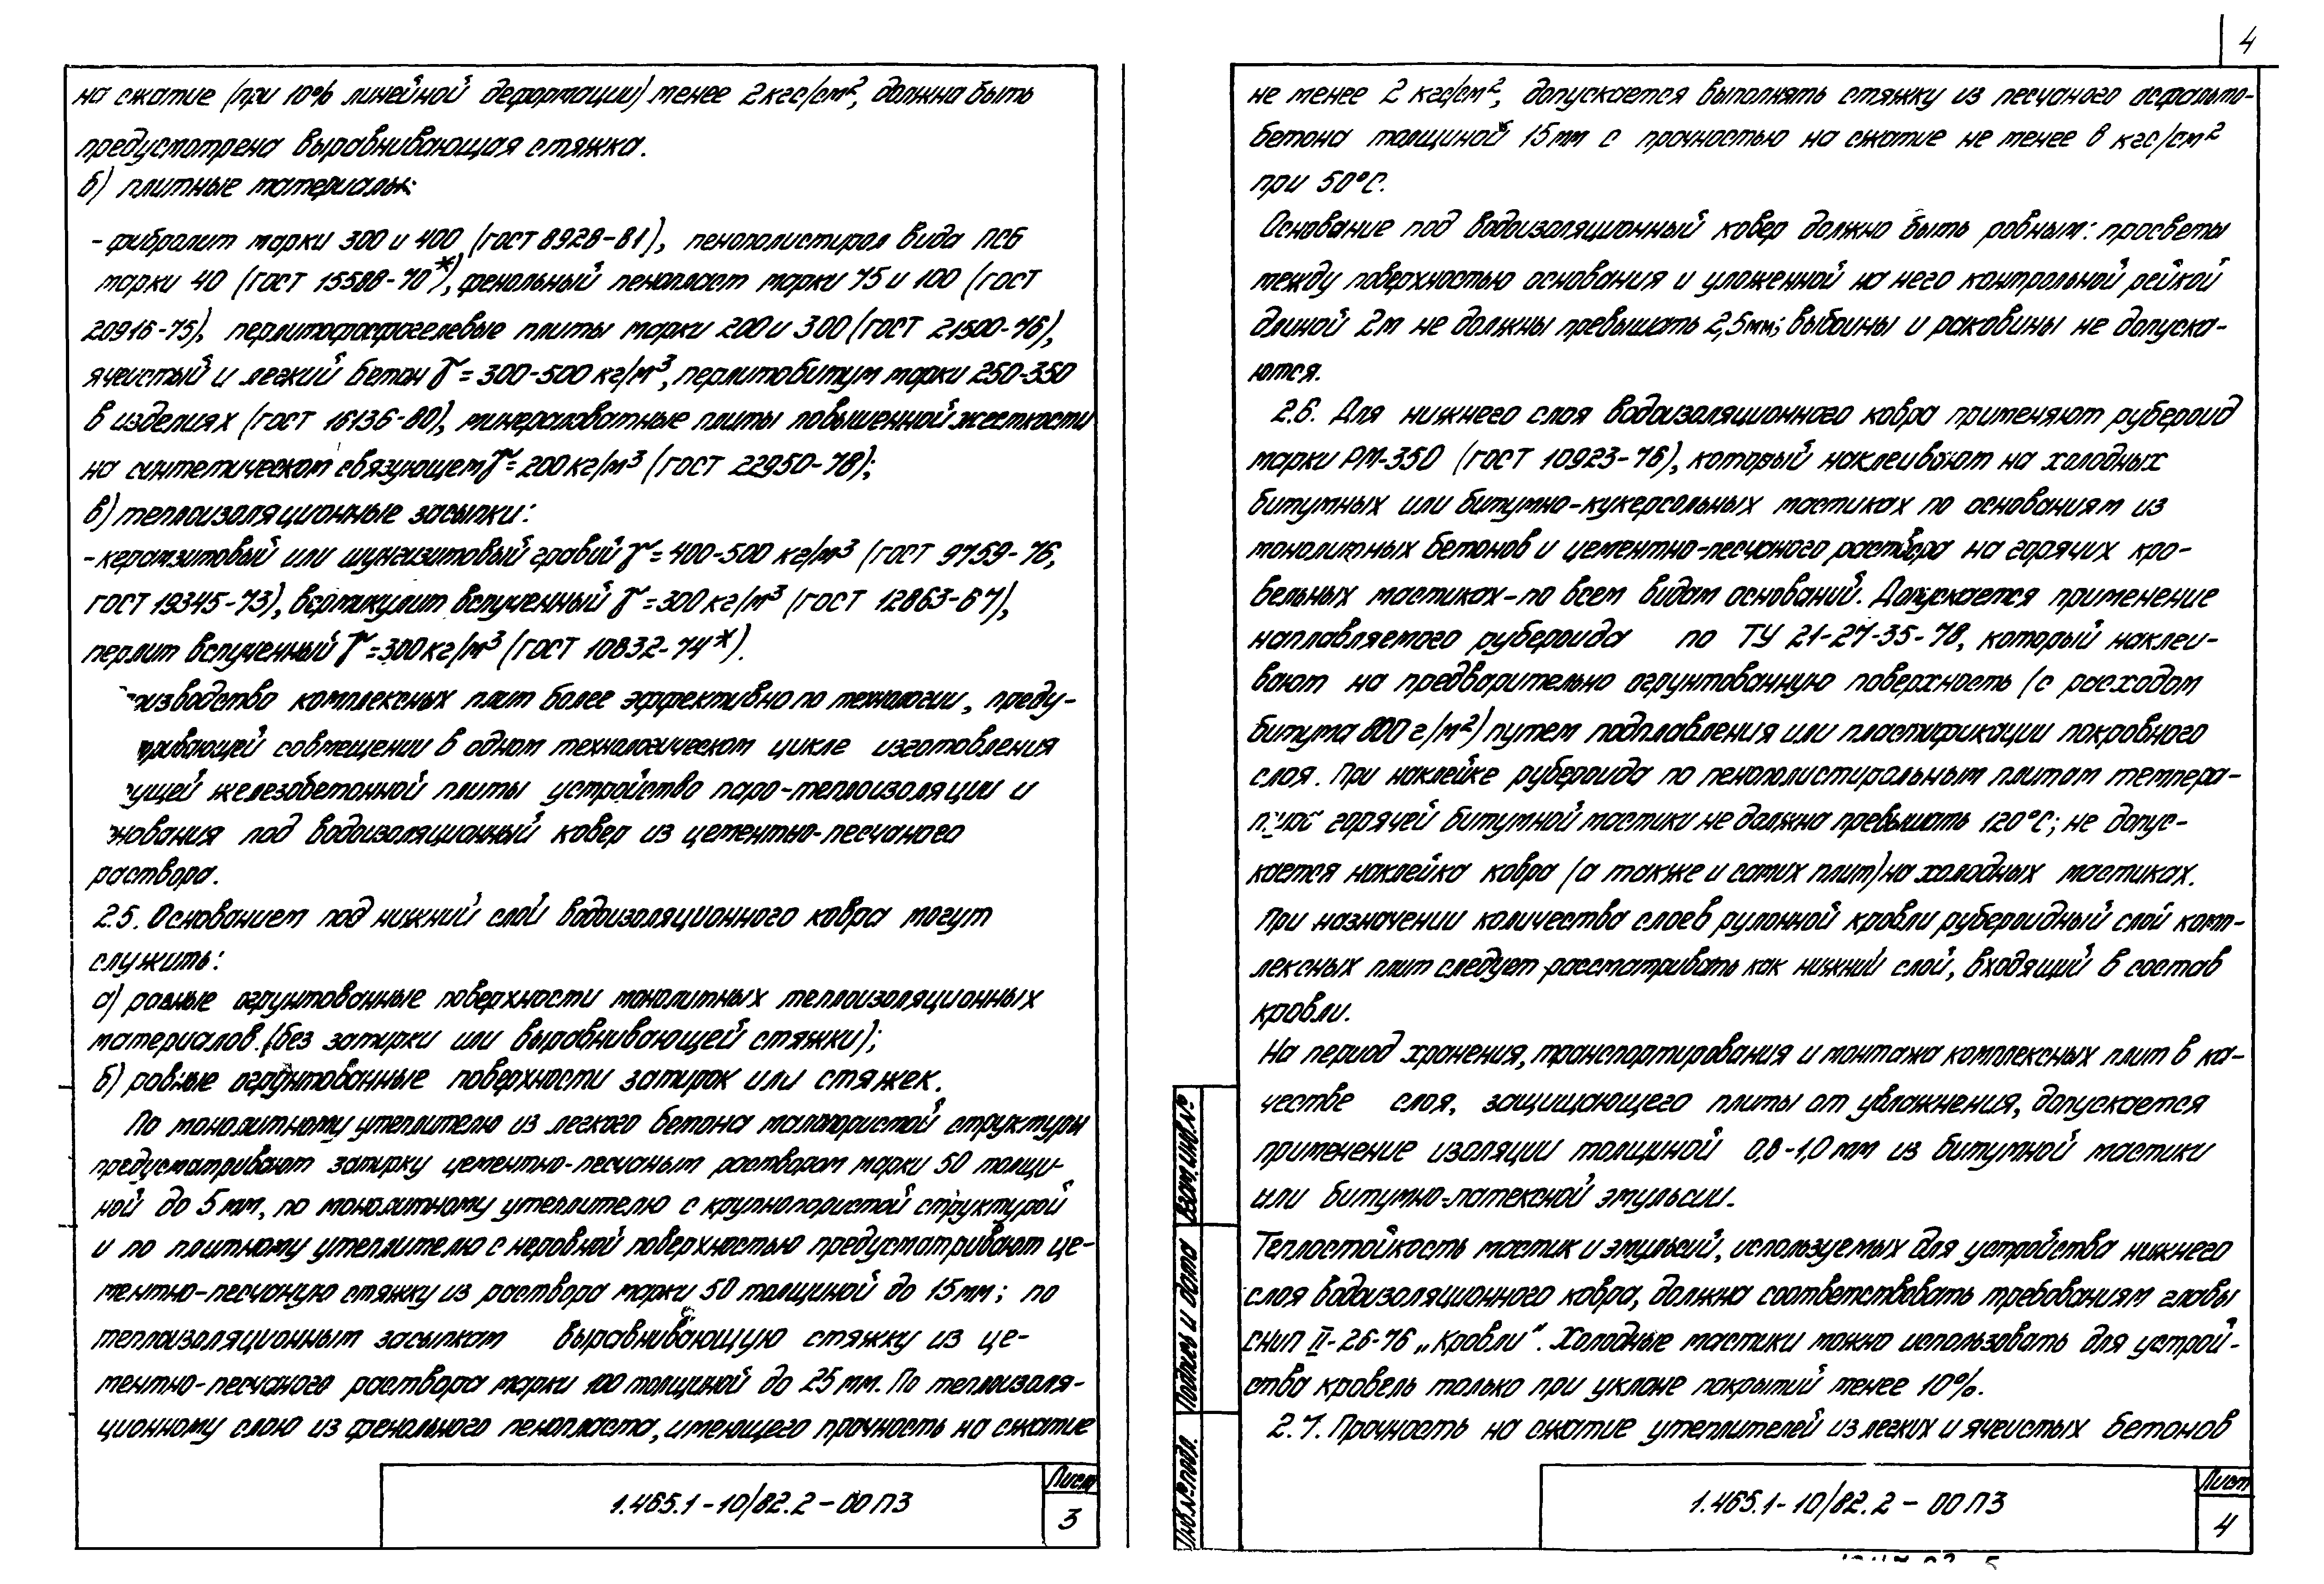 на сжатие (при 10% линейной деформации) менее 2кгс/см², должна быть
предусмотрена выравнивающая стяжка.
б) плитные материалы:
-фибролит марки 300 и 400 (гост 8928-81), пенополистирол вида ПСБ
марки 40 (ГОСТ 15588-70*), фенольный пенопласт марки 75 и 100 (гост
20916-75), перлитофосфогелевые плиты марки 200 и 300 (гост 21500-76),
ячеистый и легкий бетон γ = 300-500 кг/м³, перлитобитум марки 250-350
в изделиях (гост 16136-80), минераловатные плиты повышенной жесткости
на синтетическом связующем γ = 200 кг/м³ (гост 22950-78);
в) теплоизоляционные засыпки:
-керамзитовый или шунгизитовый гравий γ = 400-500 кг/м³ (гост 9759-76,
гост 19345-73), вермикулит вспученный γ = 300 кг/м³ (гост 12863-67),
перлит вспученный γ = 300 кг/м³ (гост 10832-74*).
изводство комплексных плит более эффективно по технологии, преду-
ривающей совмещении в одном технологическом цикле изготовления
ущей железобетонной плиты устройство паро-теплоизоляции и
нования под водоизоляционный ковер из цементно-песчаного
раствора.
2.5. Основанием под нижний слой водоизоляционного ковра могут
служить:
а) ровные огрунтованные поверхности монолитных теплоизоляционных
материалов (без затирки или выравнивающей стяжки);
б) ровные огрунтованные поверхности затирок или стяжек.
По монолитному утеплителю из легкого бетона малопористой структуры
предусматривают затирку цементно-песчаным раствором марки 50 толщи-
ной до 5 мм, по монолитному утеплителю с крупнопористой структурой
и по плитному утеплителю с неровной поверхностью предусматривают це-
ментно-песчаную стяжку из раствора марки 50 толщиной до 15 мм; по
теплоизоляционным засыпкам выравнивающую стяжку из це-
ментно-песчаного раствора марки 100 толщиной до 25 мм. По теплоизоля-
ционному слою из фенольного пенопласта, имеющего прочность на сжатие
1.465.1-10/82.2-00 ПЗ
Лист
3
4
не менее 2 кгс/см², допускается выполнять стяжку из песчаного асфальто-
бетона толщиной 15 мм с прочностью на сжатие не менее 8 кгс/см²
при 50°С.
Основание под водоизоляционный ковер должно быть ровным: просветы
между поверхностью основания и уложенной на него контрольной рейкой
длиной 2м не должны превышать 2,5мм; выбоины и раковины не допуска-
ются.
2.6. Для нижнего слоя водоизоляционного ковра применяют рубероид
марки РМ-350 (гост 10923-76), который наклеивают на холодных
битумных или битумно-кукерсольных мастиках по основаниям из
монолитных бетонов и цементно-песчаного раствора на горячих кро-
вельных мастиках-по всем видам оснований. Допускается применение
наплавляемого рубероида по ТУ 21-27-35-78, который наклеи-
вают на предварительно огрунтованную поверхность (с расходом
битума 800 г/м²) путем подплавления или пластификации покровного
слоя. При наклейке рубероида по пенополистирольным плитам темпера-
горячей битумной мастики не должна превышать 120°С; не допус-
кается наклейка ковра (а также и самих плит) на холодных мастиках.
При назначении количества слоев рулонной кровли рубероидный слой комп-
лексных плит следует рассматривать как нижний слой, входящий в состав
кровли.
На период хранения, транспортирования и монтажа комплексных плит в ка-
честве слоя, защищающего плиты от увлажнения, допускается
применение изоляции толщиной 0,8-1,0 мм из битумной мастики
или битумно-латексной эмульсии.
Теплостойкость мастик и эмульсий, используемых для устройства нижнего
слоя водоизоляционного ковра, должна соответствовать требованиям главы
СНиП II-26-76 „Кровли". Холодные мастики можно использовать для устрой-
ства кровель только при уклоне покрытий менее 10%.
2.7. Прочность на сжатие утеплителей из легких и ячеистых бетонов
Взам.инв.№
Подпись и дата
Инв.№подл.
1.465.1-10/82.2-00 ПЗ
Лист
4